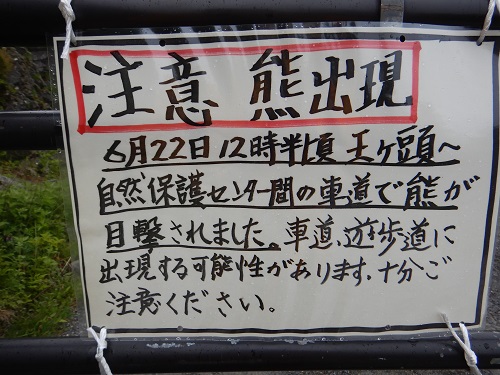 注意 熊出現
6月22日12時半頃 王ヶ頭～
自然保護センター間の車道で熊が
目撃されました。車道、遊歩道に
出現する可能性があります、十分ご
注意ください。